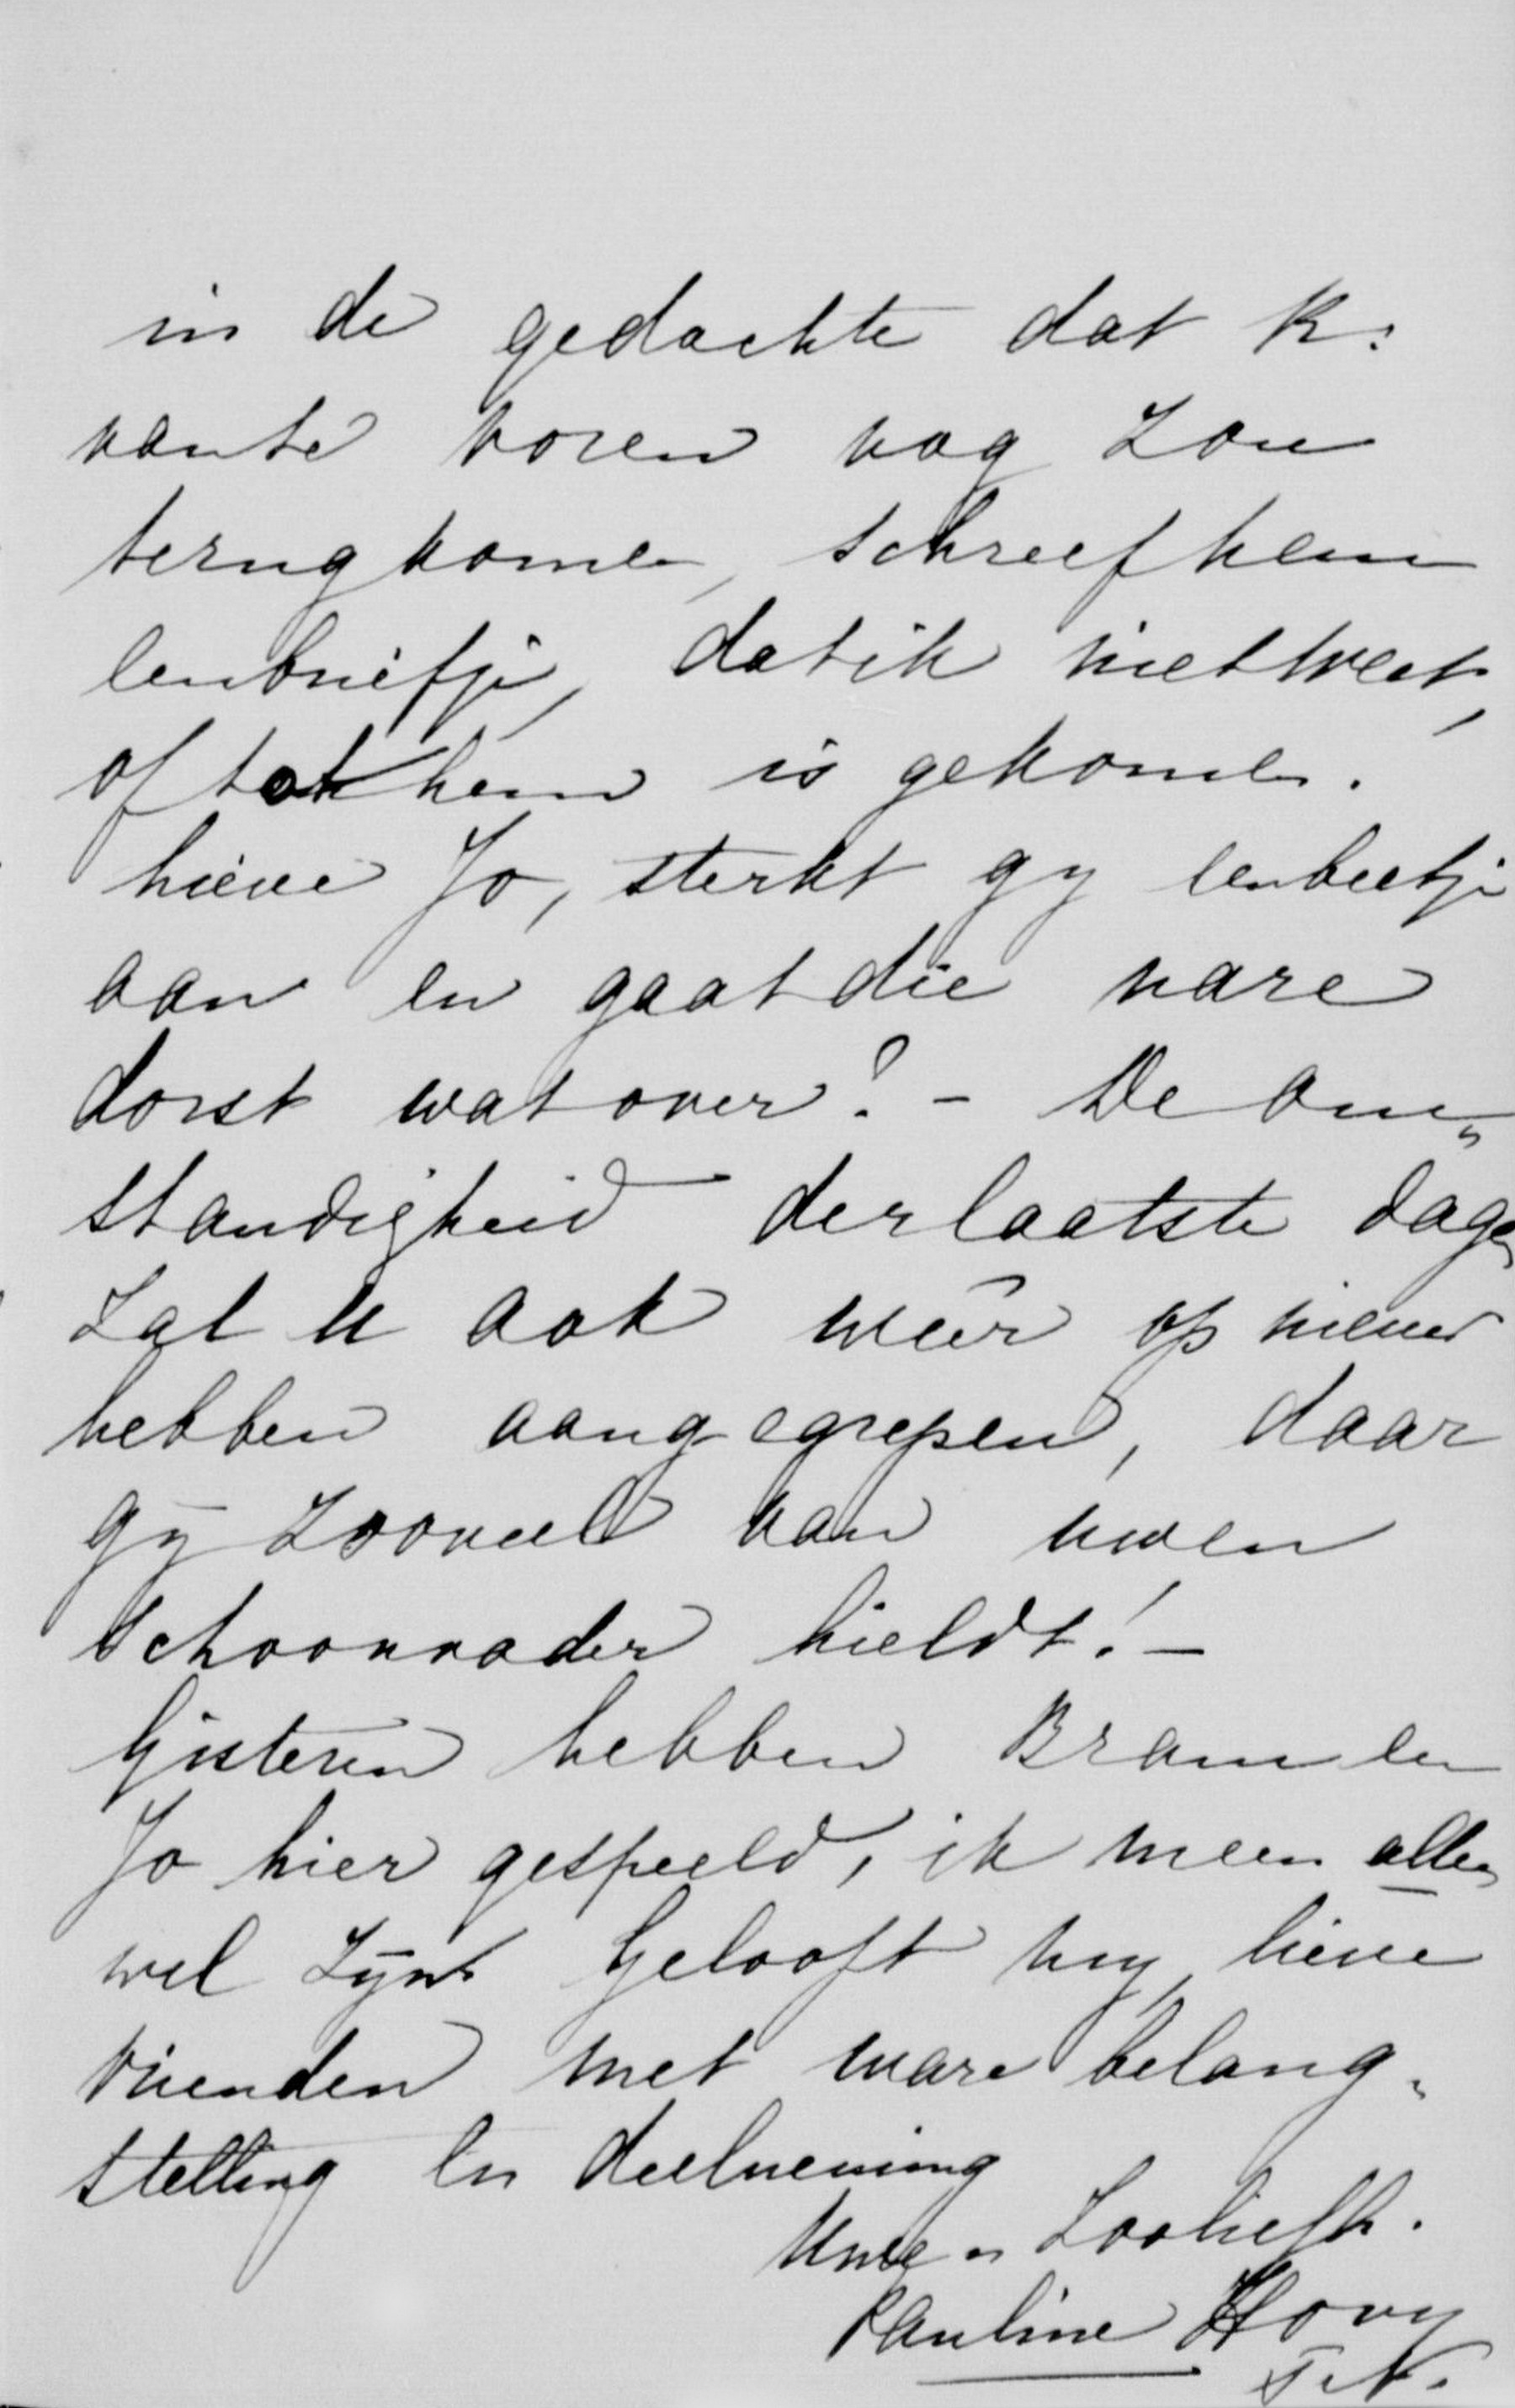 in de gedachte dat K:
kante voren nog zou
terugkomen, schreef hem
een briefje, dat ik niet weet,
of tot hem is gekomen.
Lieve Jo, sterkt gy een beetje
aan en gaat die nare
dorst wat over? - De om„
standigheid der laatste dagen
zal U ook weêr op nieuw
hebben aangegrepen, daar
gy zooveel van uwen
Schoonvader hieldt! -
Gisteren hebben Bram en
Jo hier gespeeld, ik meen allen
wel zyn. Gelooft my, lieve
vrienden met ware belang„
stelling en deelneming
Uwe
Pauline Hovy